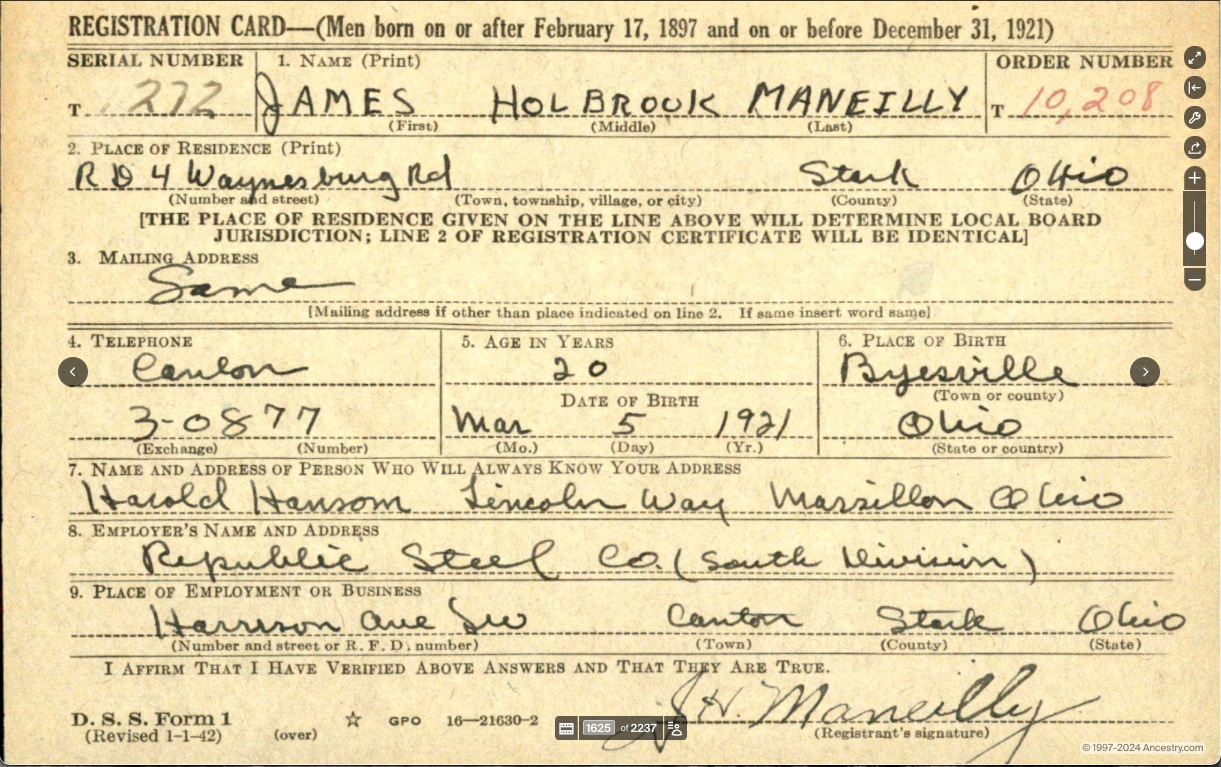 REGISTRATION CARD—(Men born on or after February 17, 1897 and on or before December 31, 1921)
SERIAL NUMBER 1. NAME (Print) ORDER NUMBER
T 272 JAMES HOLBROOK MANEILLY T 10,208
(First) (Middle) (Last)
2. PLACE OF RESIDENCE (Print)
R D 4 Waynesburg Rd Stark OHio
(Number and street) (Town, township, village, or city) (County) (State)
[THE PLACE OF RESIDENCE GIVEN ON THE LINE ABOVE WILL DETERMINE LOCAL BOARD
JURISDICTION; LINE 2 OF REGISTRATION CERTIFICATE WILL BE IDENTICAL]
3. MAILING ADDRESS
Same
[Mailing address if other than place indicated on line 2. If same insert word same]
4. TELEPHONE 5. AGE IN YEARS 6. PLACE OF BIRTH
Canton 20 Byesville
DATE OF BIRTH (Town or county)
3-0877 Mar 5 1921 Ohio
(Exchange) (Number) (Mo.) (Day) (Yr.) (State or country)
7. NAME AND ADDRESS OF PERSON WHO WILL ALWAYS KNOW YOUR ADDRESS
Harold Hansom Lincoln Way Massillon Ohio
8. EMPLOYER'S NAME AND ADDRESS
Republic Steel Co. (South Division)
9. PLACE OF EMPLOYMENT OR BUSINESS
Harrison Ave SW Canton Stark Ohio
(Number and street or R. F. D. number) (Town) (County) (State)
I AFFIRM THAT I HAVE VERIFIED ABOVE ANSWERS AND THAT THEY ARE TRUE.
J H. Maneilly
D. S. S. Form 1 GPO 16—21630-2 1625 of 2237
(Revised 1-1-42) (over) (Registrant's signature)
© 1997-2024 Ancestry.com